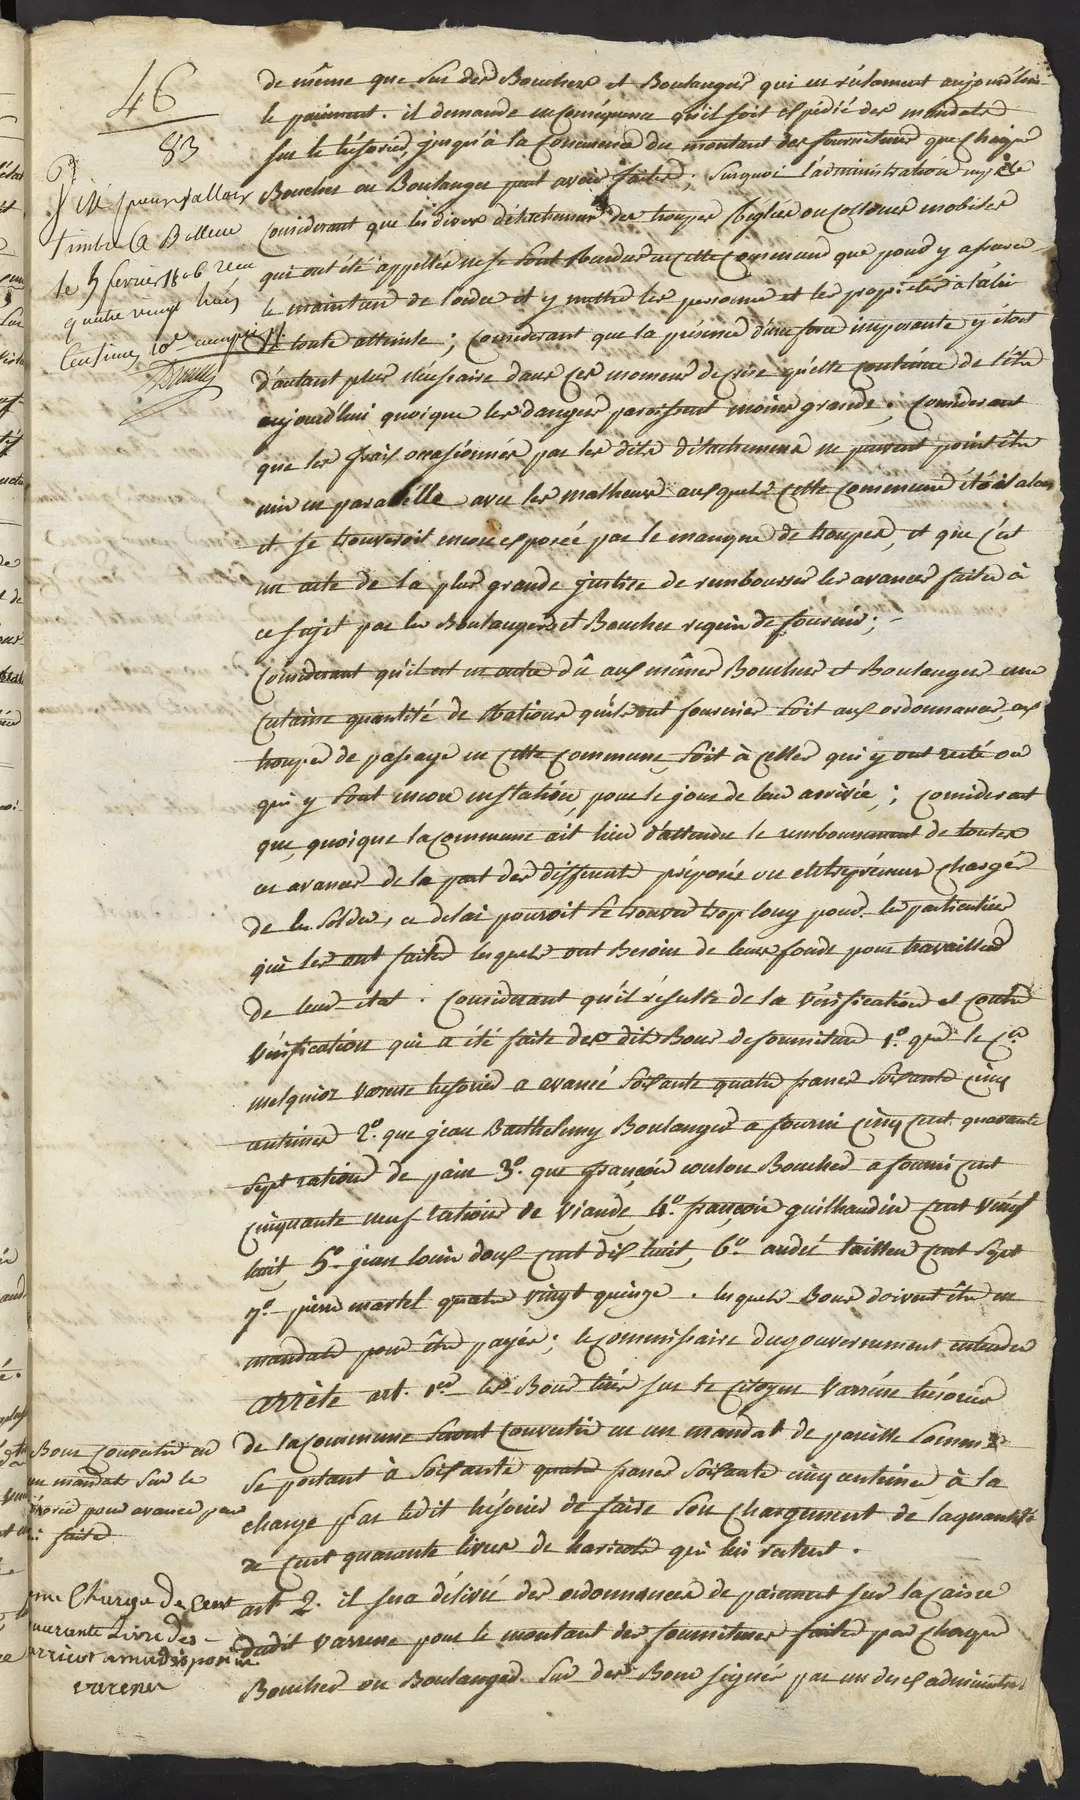 46
83
Visé pour valloir
timbre A Bollene
le 5 fevrier 1806 recu
quatre vingt huit
Centimes 10e compris
de même que sur des Bouchers et Boulangers qui en réclament aujourd'hui
le paiement. il demande en conséquence qu'il soit expédié des mandats
sur le trésorier, jusqu'à la Concurence du montant des fournitures que chaque
Boucher ou Boulanger peut avoir faites; Surquoi l'administration mple
Considerant que les divers détachemens des troupes Réglées ou colonnes mobiles
qui ont été appellés ne se sont Rendus en cette Commune que pour y assurer
le maintien de l'ordre et y mettre les personnes et les propriétés à l'abri
de toute atteinte; Considerant que la présence d'une force imposante y étoit
d'autant plus necessaire dans ces momens de crise qu'elle continue de l'être
aujourd'hui quoique les dangers paroissent moins grands; Considerant
que les frais occasionnés par les dits détachemens ne peuvent point être
mis en parallelle avec les malheurs auxquels cette Commune étoit alors
et se trouveroit encore exposée par le manque de troupes, et que c'est
un acte de la plus grande justice de rembourser les avances faites à
ce sujet par les Boulangers et Bouchers requis de fournir;
Considerant qu'il est en outre dû aux mêmes Bouchers et Boulangers une
Certaine quantité de Rations qu'ils ont fournies soit aux ordonnances, aux
troupes de passage en cette Commune, soit à celles qui y ont resté ou
qui y sont encore en station pour le jour de leur arrivée; Considerant
que, quoique la Commune ait lieu d'attendre le remboursement de toutes
ces avances de la part des differents préposés ou entrepreneurs chargés
de les solder, ce delai pourroit se trouver trop long pour les particuliers
qui les ont faites lesquels ont Besoin de leurs fonds pour travailler
de leur état. Considerant qu'il résulte de la vérification et contre
vérification qui a été faite des dits Bons de fourniture 1o. que le Cen
melquior varene tresorier a avancé soixante quatre francs soixante cinq
centimes 2o. que jean Barthelemy Boulanger a fourni cinq cent quarante
sept rations de pain 3o. que françois coulon Boucher a fourni cent
cinquante neuf rations de viande, 4o. françois guilhaudin cent vingt
huit, 5o. jean louis doux cent dix huit, 6o. andré taillen cent sept
7o. pierre martel quatre vingt quinze. lesquels Bons doivent être en
mandats pour être payés; le Commissaire du gouvernement entendu
arrête art. 1er les Bons tirés sur le Citoyen Varréne trésorier
de la Commune seront Convertis en un mandat de pareille somme
se portant à soixante quatre francs soixante cinq centimes à la
charge par ledit trésorier de faire son chargement de la quantité
de cent quarante livres de haricots qui lui restent.
art 2. il sera délivré des ordonnances de paiement sur la caisse
dudit varrene pour le montant des fournitures faites par chaque
Boucher ou Boulanger. sur des Bons signés par un des administrs
Bons convertis en
un mandat sur le
trésorier pour avances par
lui faites
me Charge de Cent
quarante Livres des
arricot a ma disposition
varenes